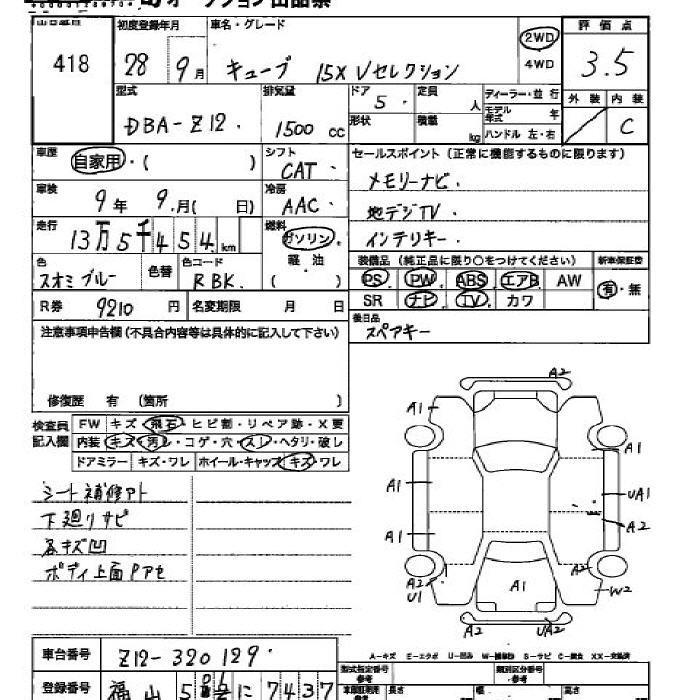 オークション出品票
出品番号 418
初度登録年月 28年 9月
車名・グレード キューブ 15X Vセレクション
2WD
4WD
評価点 3.5
型式 DBA-Z12
排気量 1500 cc
ドア 5
形状
定員 人
積載 kg
ディーラー・並行
モデル年式 年
ハンドル 左・右
外装
内装 C
車歴 自家用・( )
シフト CAT
セールスポイント(正常に機能するものに限ります)
メモリーナビ.
地デジTV.
インテリキー.
車検 9年 9月( 日)
冷房 AAC
走行 13万5千454km
燃料 ガソリン
軽・油
( )
色 スオミブルー
色替
色コード RBK
装備品(純正品に限り○をつけてください)
新車保証書
PS PW ABS エアB AW
SR ナビ TV カワ
有・無
R券 9210円
名変期限 月 日
後日品
スペアキー
注意事項申告欄(不具合内容等は具体的に記入して下さい)
修復歴 有 (箇所 )
検査員記入欄
FW キズ・飛石・ヒビ割・リペア跡・X要
内装・キズ・汚レ・コゲ・穴・スレ・ヘタリ・破レ
ドアミラー キズ・ワレ ホイール・キャップ キズ・ワレ
シート補修アト
下廻りサビ
各キズ凹
ボディ上面Pアセ
A2
A1
A1
A1
UA1
A1
A2
A2
U1
A1
A2
W2
A2
UA2
A-キズ E-エクボ U-凹み W-補修跡 S-サビ C-腐食 XX-交換済
車台番号 Z12-320129
型式指定番号 参考
類別区分番号 参考
登録番号 福山 5 に 7437
長さ
幅
高さ